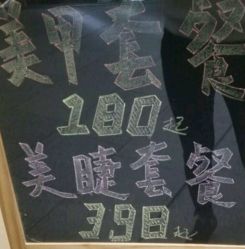 美甲套餐
180起
美睫套餐
398起